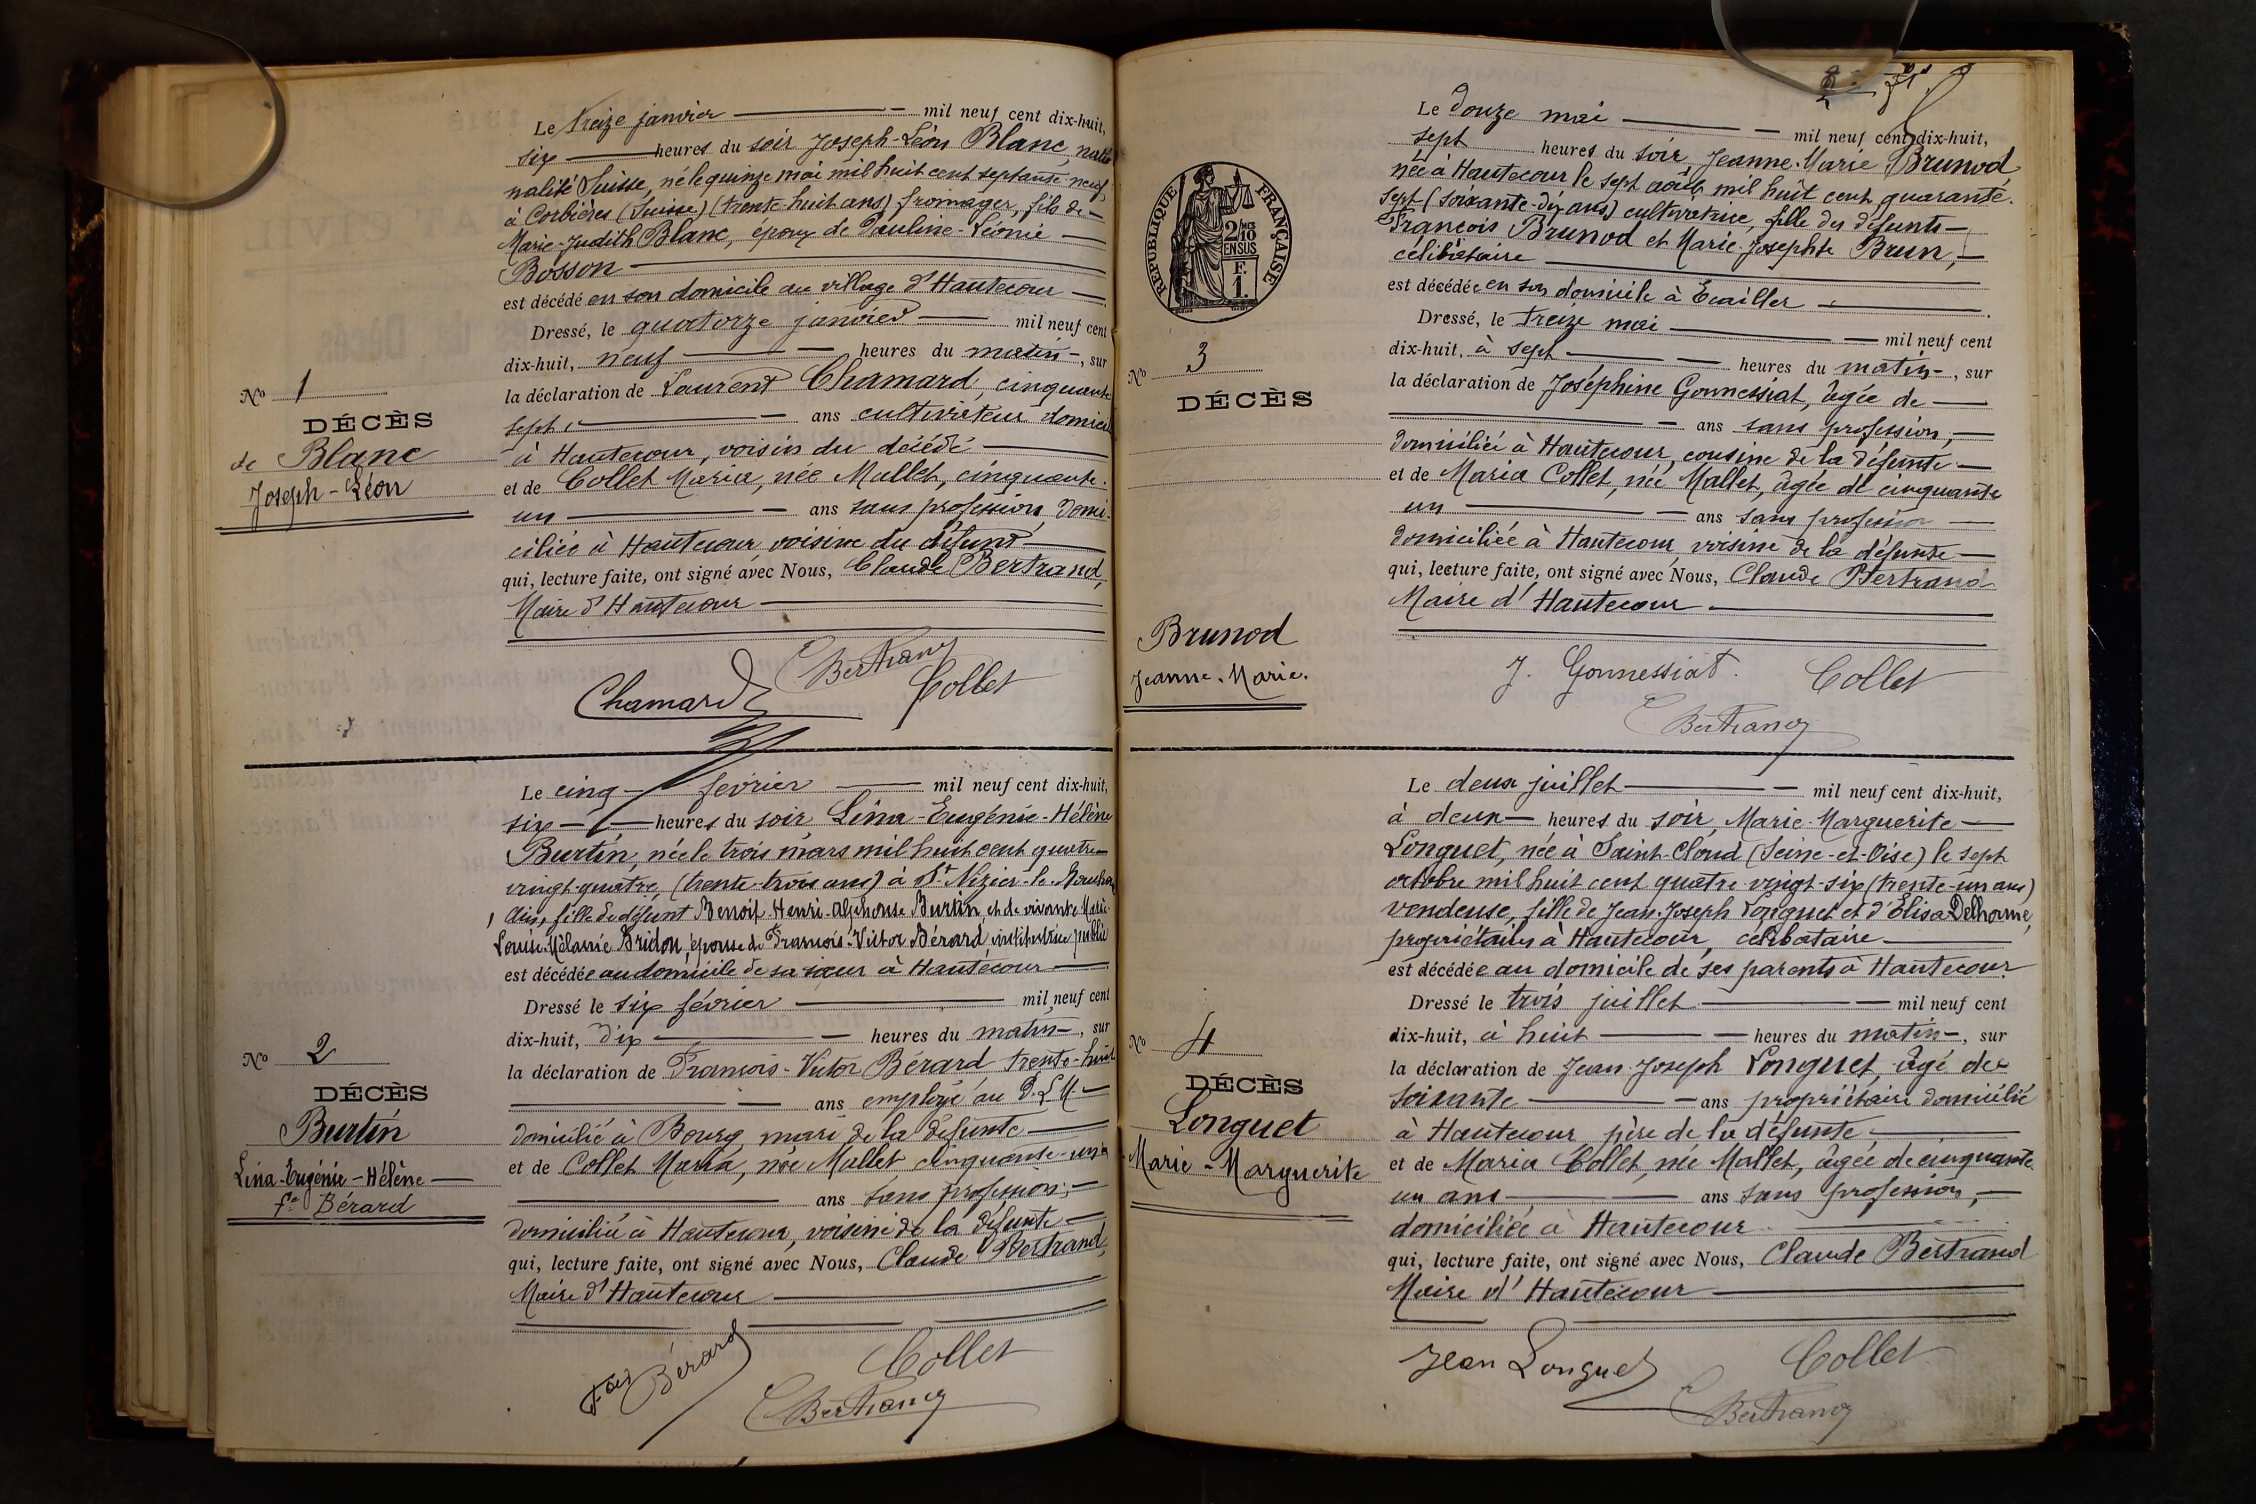 Le treize janvier — mil neuf cent dix-huit,
six — heures du soir Joseph-Léon Blanc, natio
nalité Suisse, né le quinze mai mil huit cent septante neuf,
à Corbières (Suisse) (trente-huit ans) fromager, fils de —
Marie-Judith Blanc, époux de Pauline-Léonie —
Bosson —
est décédé en son domicile au village d'Hautecour —
Dressé, le quatorze janvier — mil neuf cent
dix-huit, neuf — heures du matin —, sur
la déclaration de Laurent Chamard, cinquante
sept, — ans cultivateur domici
à Hautecour, voisin du décédé —
et de Collet Maria, née Mallet, cinquante-
un — ans sans profession, domi-
ciliée à Hautecour voisine du défunt —
qui, lecture faite, ont signé avec Nous, Claude Bertrand,
Maire d'Hautecour —
CBertrand
Chamard Collet
No 1
DÉCÈS
de Blanc
Joseph-Léon
Le cinq — février — mil neuf cent dix-huit,
six — heures du soir, Lina-Eugénie-Hélène
Burtin, née le trois mars mil huit cent quatre-
vingt-quatre, (trente-trois ans) à St Nizier-le-Bouchoux
Ain, fille de défunt Benoit-Henri-Alphonse Burtin, et de vivante Marie-
Louise-Mélanie Bridon, épouse de François-Victor Bérard institutrice public
est décédée au domicile de sa sœur à Hautecour —
Dressé le six février — mil neuf cent
dix-huit, dix — heures du matin —, sur
la déclaration de François-Victor Bérard trente-huit
— ans employé au P.L.M —
domicilié à Bourg, mari de la défunte —
et de Collet Maria, née Mallet cinquante-un
— ans sans profession, —
domiciliée à Hautecour, voisine de la défunte —
qui, lecture faite, ont signé avec Nous, Claude Bertrand,
Maire d'Hautecour —
Fçois Bérard Collet
CBertrand
No 2
DÉCÈS
Burtin
Lina-Eugénie-Hélène —
fe Bérard
Le douze mai — mil neuf cent dix-huit,
sept heures du soir, Jeanne-Marie Brunod
née à Hautecour le sept août mil huit cent quarante-
sept (soixante-dix ans) cultivatrice, fille des défunts —
François Brunod et Marie-Josephte Brun, —
célibataire —
est décédée en son domicile à Écailler —
Dressé, le treize mai — mil neuf cent
dix-huit, à sept — heures du matin —, sur
la déclaration de Joséphine Gonnessiat, âgée de —
— ans sans profession, —
domiciliée à Hautecour, cousine de la défunte —
et de Maria Collet, née Mallet, âgée de cinquante
un — ans sans profession —
domiciliée à Hautecour, voisine de la défunte —
qui, lecture faite, ont signé avec Nous, Claude Bertrand
Maire d'Hautecour —
J. Gonnessiat. Collet
CBertrand
RÉPUBLIQUE FRANÇAISE
2/10 EN SUS
F.
1.
No 3
DÉCÈS
Brunod
Jeanne-Marie.
Le deux juillet — mil neuf cent dix-huit,
à deux — heures du soir, Marie-Marguerite —
Longuet, née à Saint-Cloud (Seine-et-Oise) le sept
octobre mil huit cent quatre-vingt-six (trente-un ans)
vendeuse, fille de Jean-Joseph Longuet et d'Élisa Delhorme,
propriétaires à Hautecour, célibataire —
est décédée au domicile de ses parents à Hautecour
Dressé le trois juillet — mil neuf cent
dix-huit, à huit — heures du matin —, sur
la déclaration de Jean-Joseph Longuet, âgé de
soixante — ans propriétaire domicilié
à Hautecour, père de la défunte —
et de Maria Collet, née Mallet, âgée de cinquante
un ans, — ans sans profession, —
domiciliée à Hautecour
qui, lecture faite, ont signé avec Nous, Claude Bertrand
Maire d'Hautecour —
Jean Longuet Collet
CBertrand
No 4
DÉCÈS
Longuet
Marie-Marguerite